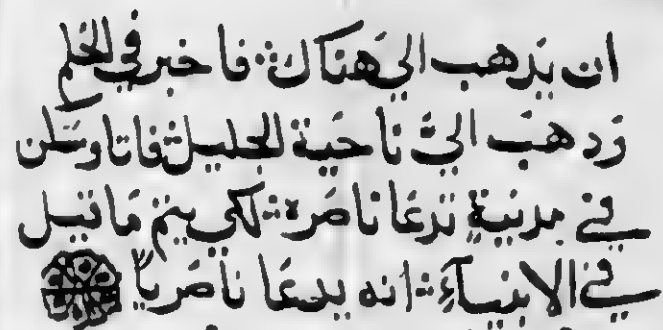 ان يذهب الي هناك ۞ فاخبر في الحلم
وذهب الي ناحية الجليل ۞ فاتا وسكن
في مدينة تدعا ناصره ۞ لكي يتم ما قيل
في الانبياء ۞ انه يدعا ناصريا ۞